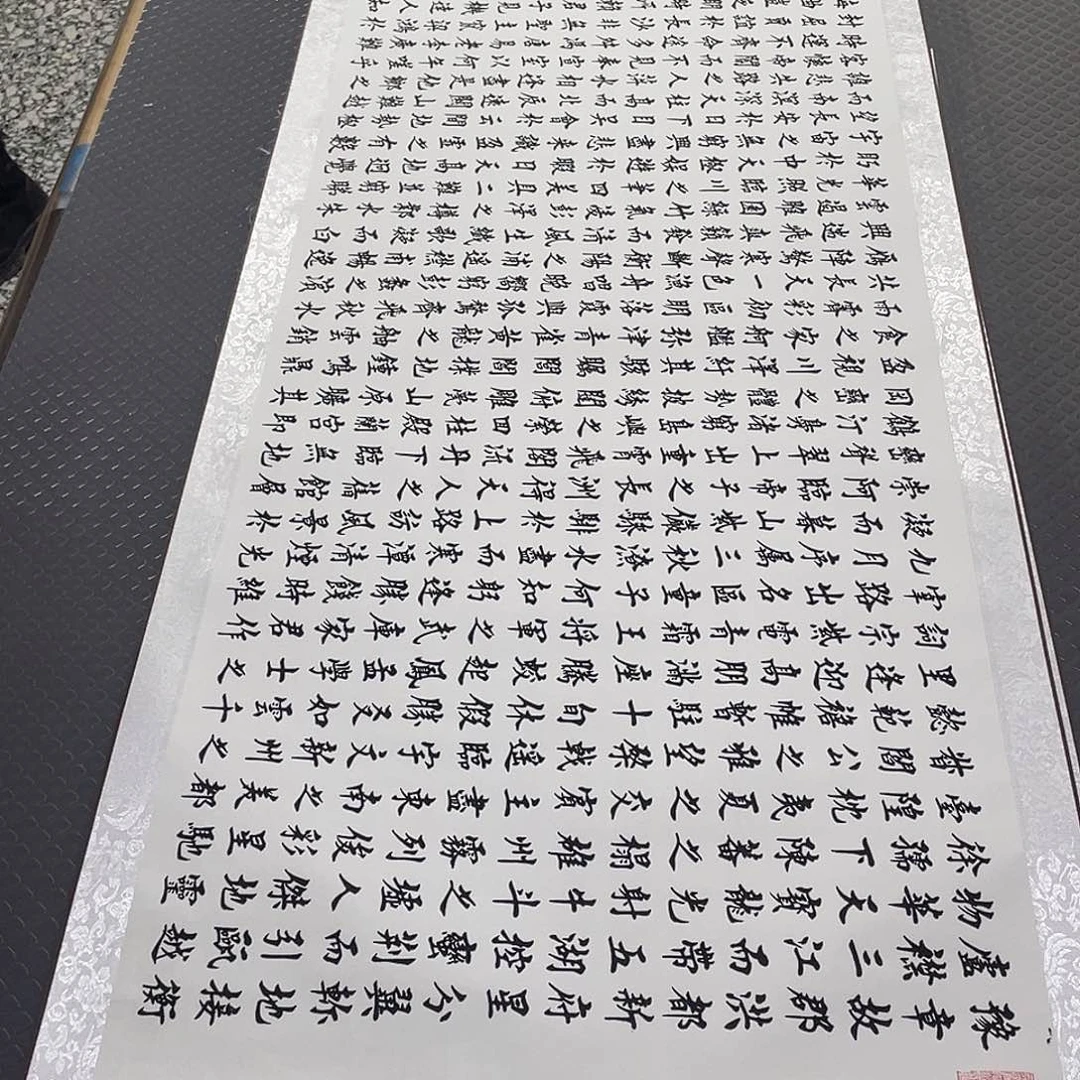 豫章故郡洪都新府星分翼軫地接衡
廬襟三江而帶五湖控蠻荊而引甌越
物華天寶龍光射牛斗之墟人傑地靈
徐孺下陳蕃之榻雄州霧列俊彩星馳
臺隍枕夷夏之交賓主盡東南之美都
督閻公之雅望棨戟遙臨宇文新州之
懿範襜帷暫駐十旬休假勝友如雲千
里逢迎高朋滿座騰蛟起鳳孟學士之
詞宗紫電青霜王將軍之武庫家君作
宰路出名區童子何知躬逢勝餞時維
九月序屬三秋潦水盡而寒潭清煙光
凝而暮山紫儼驂騑於上路訪風景於
崇阿臨帝子之長洲得天人之舊館層
巒聳翠上出重霄飛閣流丹下臨無地
鶴汀鳧渚窮島嶼之縈迴桂殿蘭宮即
岡巒之體勢披繡闥俯雕甍山原曠其
盈視川澤紆其駭矚閭閻撲地鐘鳴鼎
食之家舸艦弥津青雀黃龍之舳雲銷
雨霽彩彻區明落霞與孤鶩齊飛秋水
共長天一色漁舟唱晚響窮彭蠡之濱
雁陣驚寒聲斷衡陽之浦遙襟甫暢逸
興遄飛爽籟發而清風生纖歌凝而白
雲遏睢園綠竹氣凌彭澤之樽鄴水朱
華光照臨川之筆四美具二難並窮睇
眄於中天極娛遊於暇日天高地迥覺
宇宙之無窮興盡悲來識盈虛之有數
望長安於日下目吳會於雲間地勢極
而南溟深天柱高而北辰遠關山難越
誰悲失路之人萍水相逢盡是他鄉之
客懷帝閽而不見奉宣室以何年嗟乎
時運不齊命途多舛馮唐易老李廣難